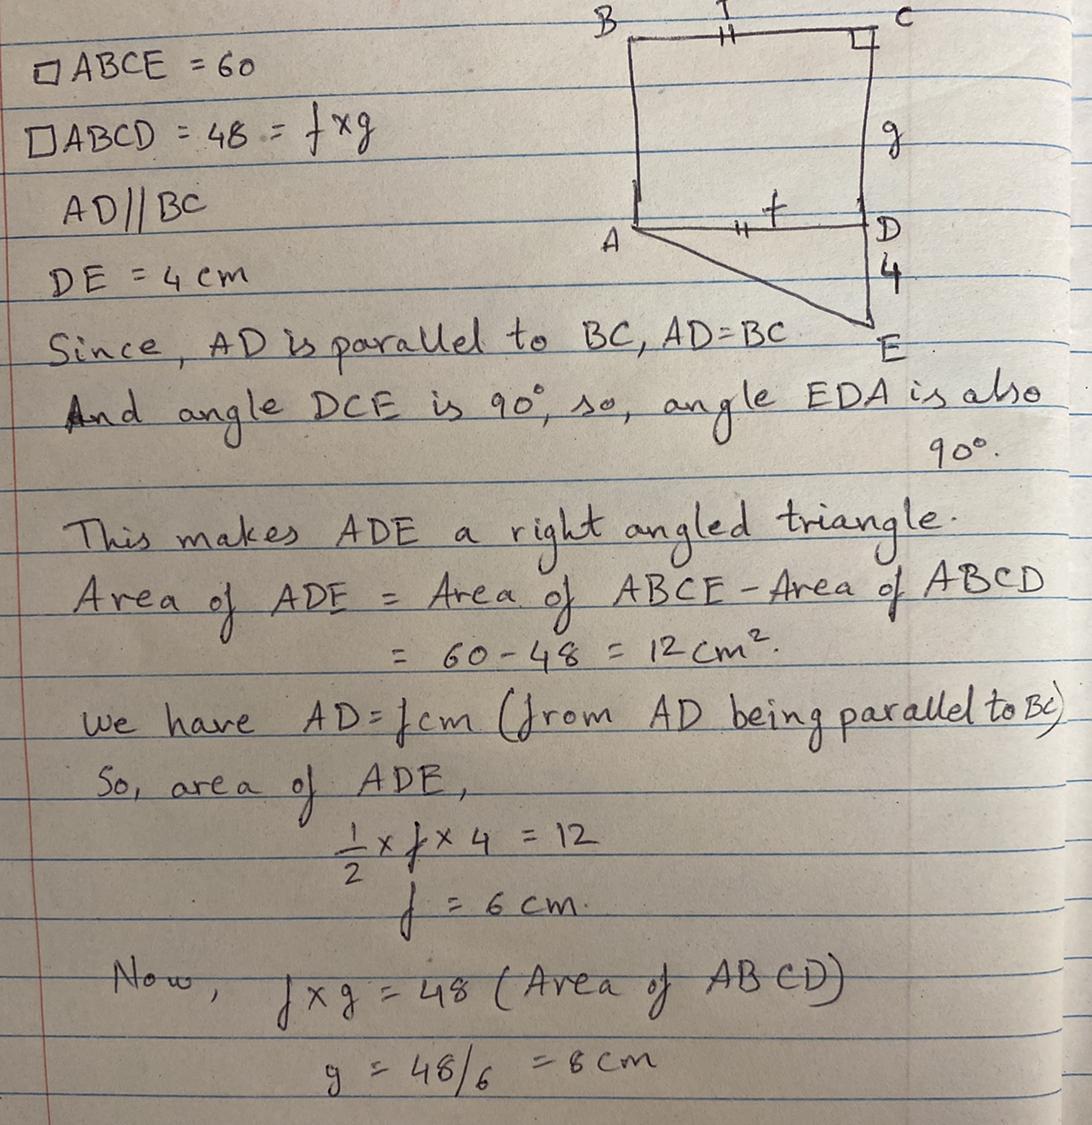 B f C
□ABCE = 60
□ABCD = 48 = f×g
g
AD//BC
A f D
DE = 4 cm
4
Since, AD is parallel to BC, AD=BC
E
And angle DCE is 90°, so, angle EDA is also
90°.
This makes ADE a right angled triangle.
Area of ADE = Area of ABCE - Area of ABCD
= 60-48 = 12cm².
We have AD=fcm (from AD being parallel to BC)
So, area of ADE,
1/2 × f × 4 = 12
f = 6 cm.
Now, f×g = 48 (Area of ABCD)
g = 48/6 = 8cm